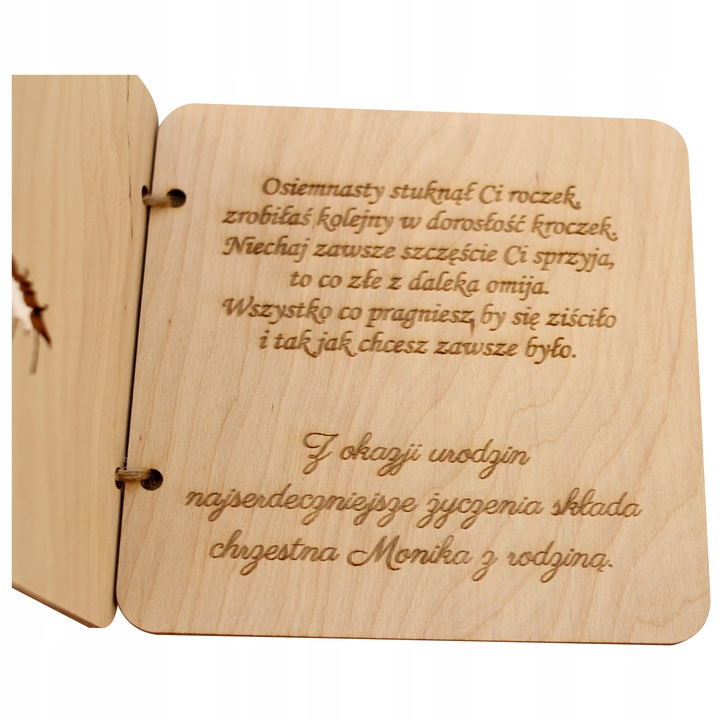 Osiemnasty stuknął Ci roczek,
zrobiłaś kolejny w dorosłość kroczek.
Niechaj zawsze szczęście Ci sprzyja,
to co złe z daleka omija.
Wszystko co pragniesz by się ziściło
i tak jak chcesz zawsze było.
Z okazji urodzin
najserdeczniejsze życzenia składa
chrzestna Monika z rodziną.